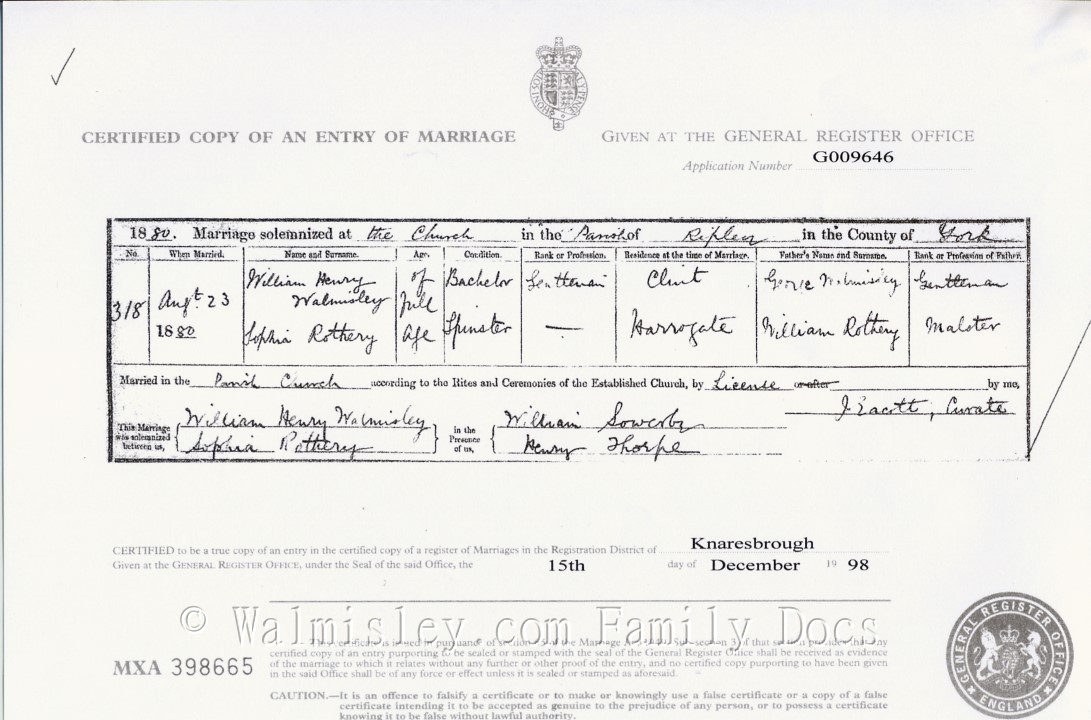 CERTIFIED COPY OF AN ENTRY OF MARRIAGE
GIVEN AT THE GENERAL REGISTER OFFICE
Application Number G009646
1880. Marriage solemnized at the Church in the Parish of Ripley in the County of York
No. When Married. Name and Surname. Age. Condition. Rank or Profession. Residence at the time of Marriage. Father's Name and Surname. Rank or Profession of Father.
318 Augt. 23 1880
William Henry Walmisley of full age Bachelor Gentleman Clint George Walmisley Gentleman
Sophia Rothery Spinster — Harrogate William Rothery Malster
Married in the Parish Church according to the Rites and Ceremonies of the Established Church, by License or after by me,
J. Eacott, Curate
This Marriage was solemnized between us, William Henry Walmisley Sophia Rothery
in the Presence of us, William Sowerby Henry Thorpe
CERTIFIED to be a true copy of an entry in the certified copy of a register of Marriages in the Registration District of Knaresbrough
Given at the GENERAL REGISTER OFFICE, under the Seal of the said Office, the 15th day of December 1998
© Walmisley.com Family Docs
This certificate is issued in pursuance of section 65 of the Marriage Act 1949. Sub-section 3 of that section provides that any
certified copy of an entry purporting to be sealed or stamped with the seal of the General Register Office shall be received as evidence
of the marriage to which it relates without any further or other proof of the entry, and no certified copy purporting to have been given
in the said Office shall be of any force or effect unless it is sealed or stamped as aforesaid.
MXA 398665
CAUTION.—It is an offence to falsify a certificate or to make or knowingly use a false certificate or a copy of a false
certificate intending it to be accepted as genuine to the prejudice of any person, or to possess a certificate
knowing it to be false without lawful authority.
GENERAL REGISTER OFFICE
ENGLAND